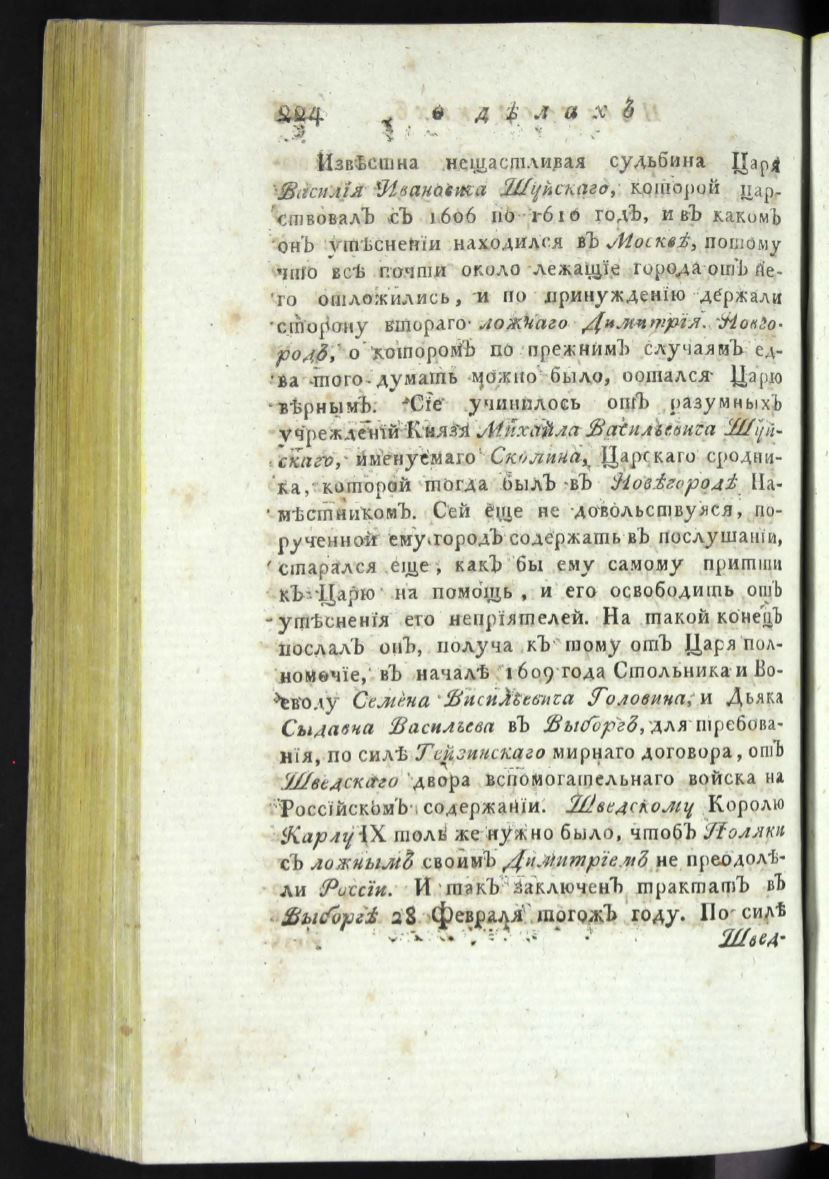 224 о дѣлахъ
Извѣстна нещастливая судьбина Царя
Василїя Ивановича Шуйскаго, которой цар-
ствовалъ съ 1606 по 1610 годъ, и въ какомъ
онъ утѣсненїи находился въ Москвѣ, потому
что всѣ почти около лежащїе города отъ не-
го отложились, и по принужденїю держали
сторону втораго ложнаго Димитрїя. Новго-
родъ, о которомъ по прежнимъ случаямъ ед-
ва того думать можно было, остался Царю
вѣрнымъ. Сїе учинилось отъ разумныхъ
учрежденїй Князя Михайла Васильевича Шуй-
скаго, именуемаго Скопина, Царскаго сродни-
ка, которой тогда былъ въ Новѣгородѣ На-
мѣстникомъ. Сей еще не довольствуяся, по-
рученной ему городъ содержать въ послушанїи,
старался еще, какъ бы ему самому притти
къ Царю на помощь, и его освободить отъ
утѣсненїя его непрїятелей. На такой конецъ
послалъ онъ, получа къ тому отъ Царя пол-
номочїе, въ началѣ 1609 года Стольника и Во-
еводу Семена Висильевича Головина, и Дьяка
Сыдавна Васильева въ Выборгъ, для требова-
нїя, по силѣ Тейзинскаго мирнаго договора, отъ
Шведскаго двора вспомогательнаго войска на
Россїйскомъ содержанїи. Шведскому Королю
Карлу IX толь же нужно было, чтобъ Поляки
съ ложнымъ своимъ Димитрїемъ не преодолѣ-
ли Россїи. И такъ заключенъ трактатъ въ
Выборгѣ 28 Февраля тогожъ году. По силѣ
Швед-